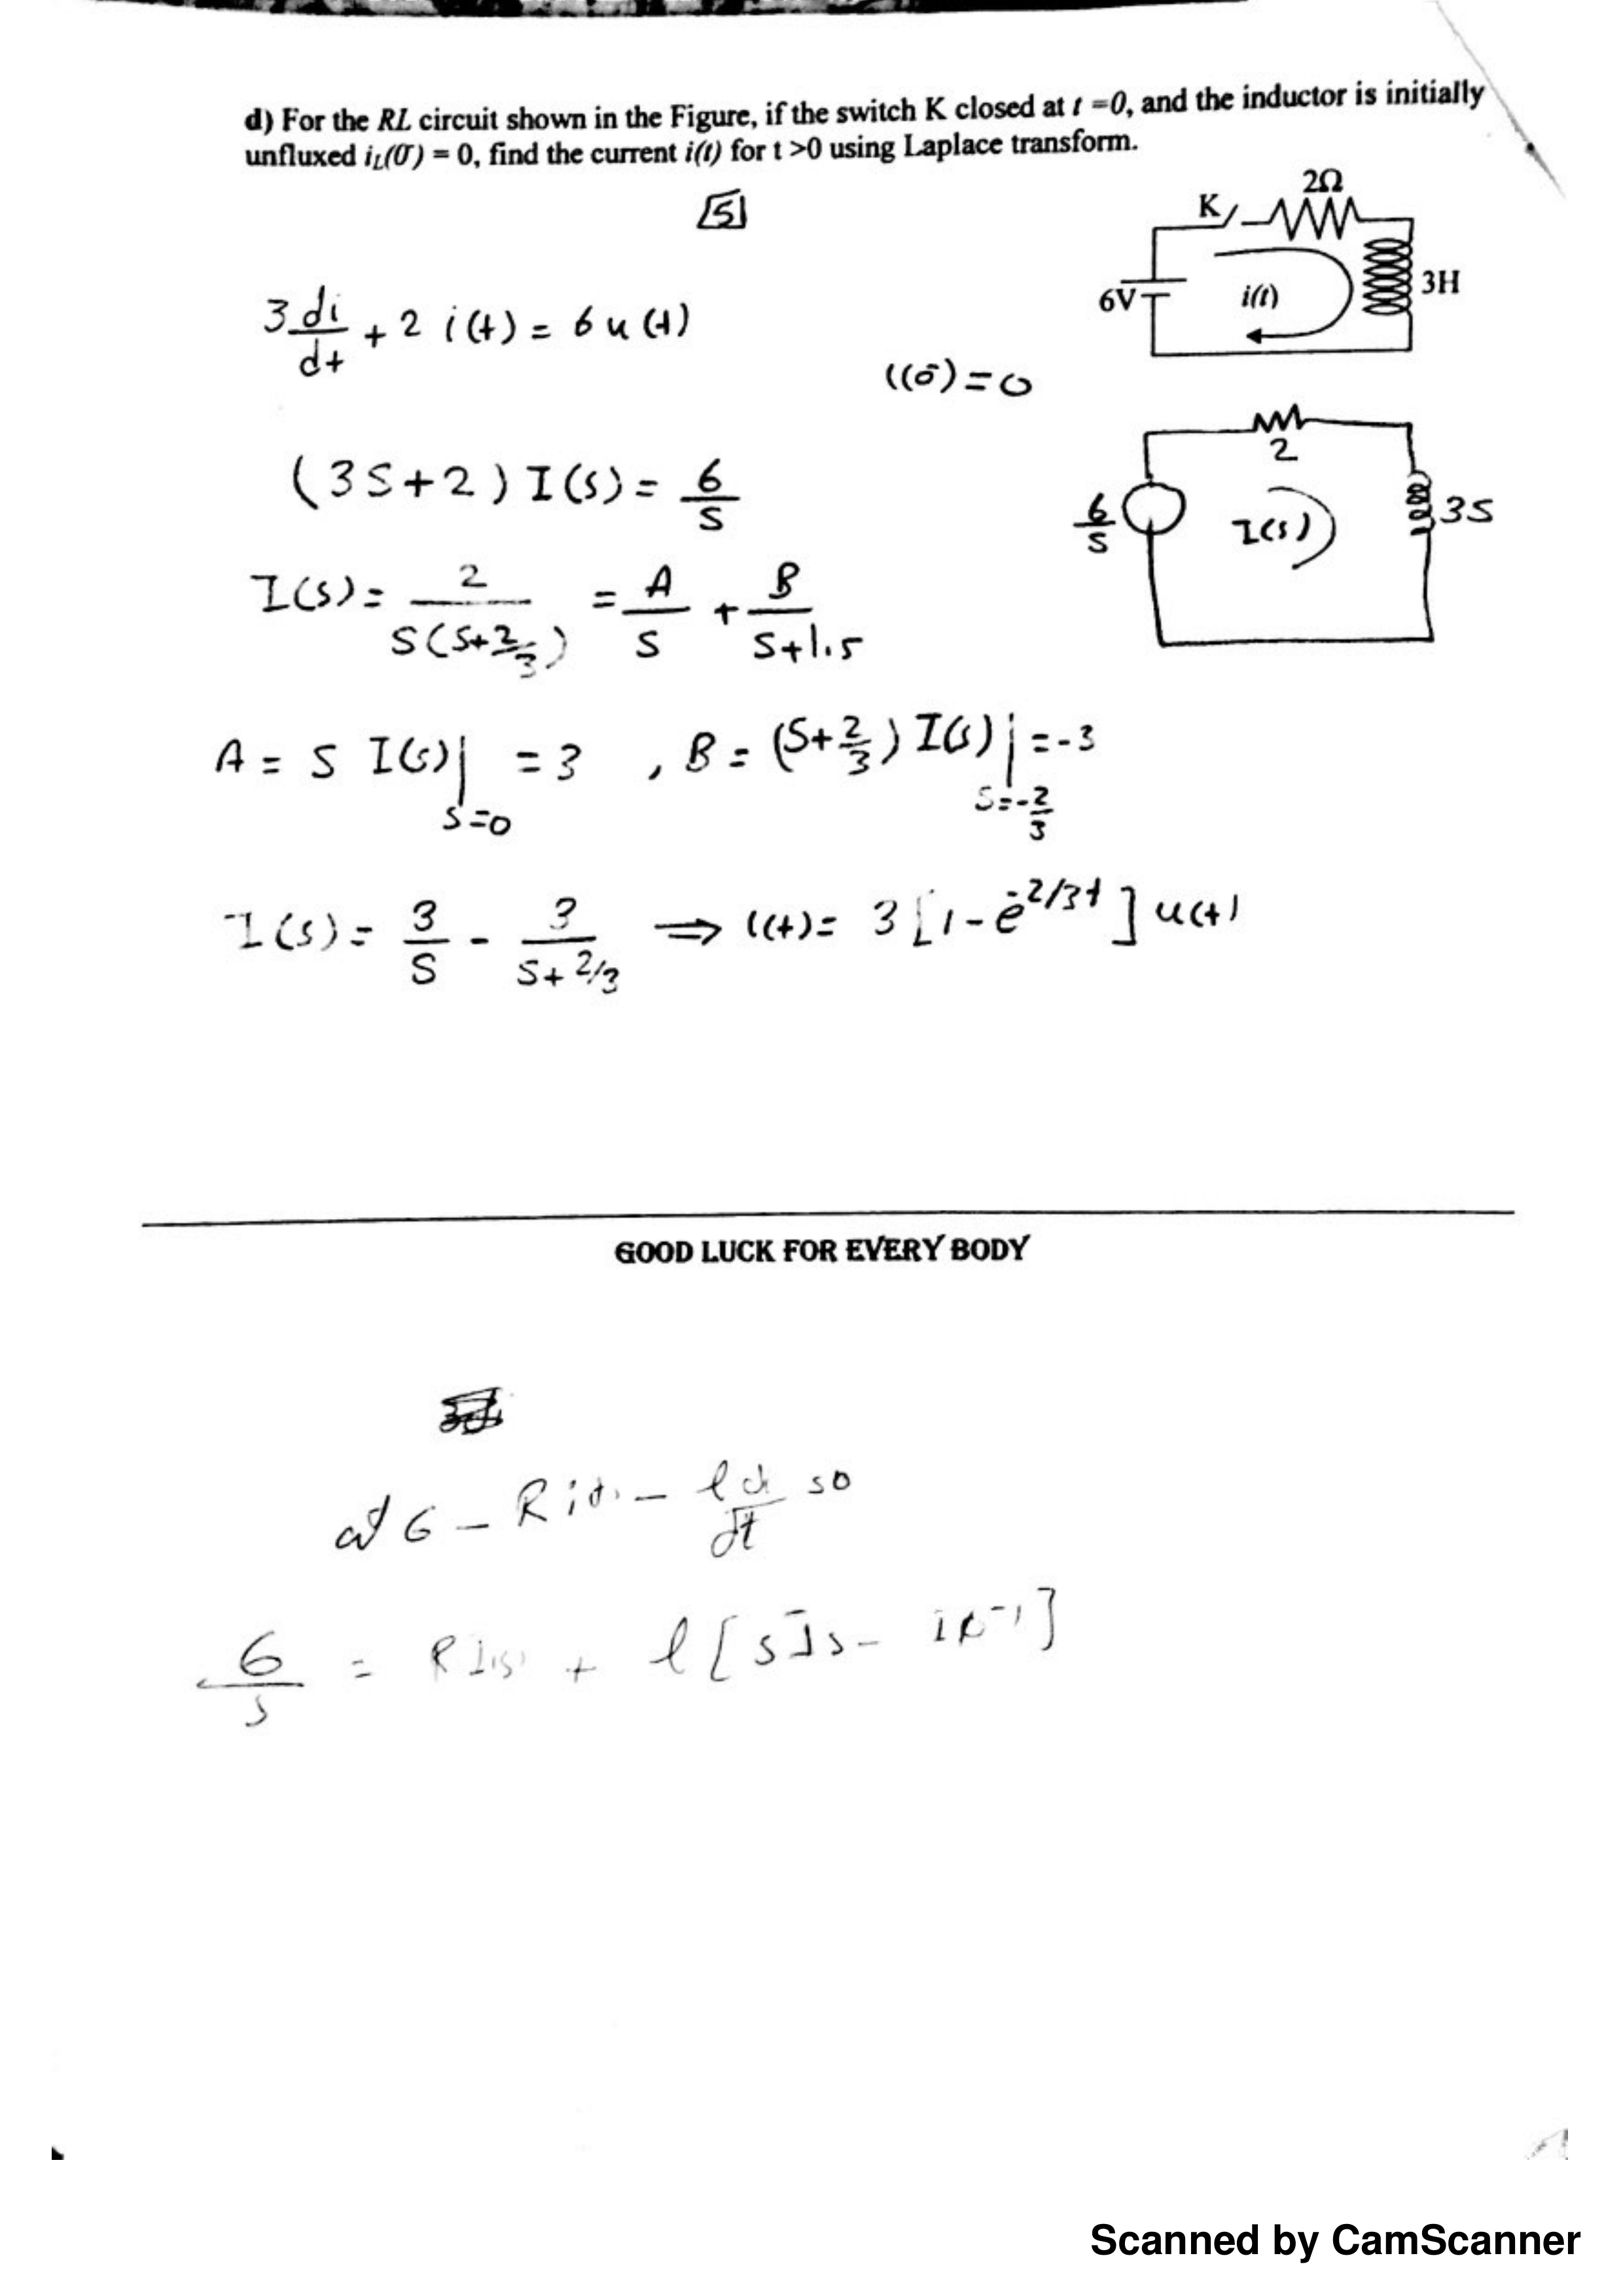 d) For the RL circuit shown in the Figure, if the switch K closed at t =0, and the inductor is initially
unfluxed i_L(0⁻) = 0, find the current i(t) for t >0 using Laplace transform.
5
K 2Ω
6V i(t) 3H
3 di/dt + 2 i(t) = 6 u(t)
i(0⁻) = 0
(3S+2) I(s) = 6/S
2
6/S I(s) 3S
I(s) = 2/(S(S+2/3)) = A/S + B/(S+1.5)
A = S I(s)|S=0 = 3 , B = (S+2/3) I(s)|S=-2/3 = -3
I(s) = 3/S - 3/(S+2/3) ⇒ i(t) = 3 [1-e⁻²/³ᵗ] u(t)
GOOD LUCK FOR EVERY BODY
6 - R i(t) - l di/dt = 0
6/s = R I(s) + l [s Is - i(0⁻)]
Scanned by CamScanner